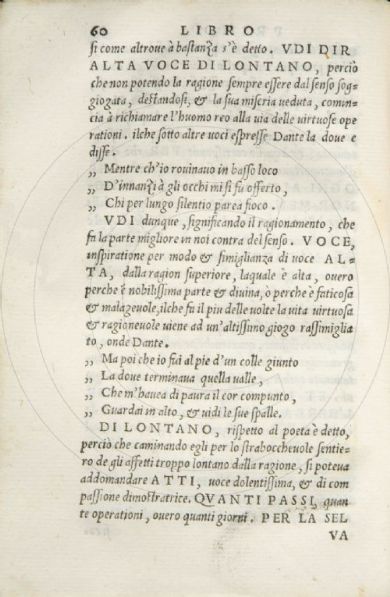 60 LIBRO
ſi come altroue à baſtanza s'è detto. VDI DIR
ALTA VOCE DI LONTANO, perciò
che non potendo la ragione ſempre eſſere dal ſenſo ſog-
giogata, deſtandoſi, & la ſua miſeria ueduta, comin-
cia à richiamare l'huomo reo alla uia delle virtuoſe ope
rationi. ilche ſotto altre uoci eſpreſſe Dante la doue e
diſſe.
„ Mentre ch'io rouinauo in baſſo loco
„ D'innanzi à gli occhi mi ſi fu offerto,
„ Chi per lungo ſilentio parea fioco.
VDI dunque, ſignificando il ragionamento, che
fa la parte migliore in noi contra del ſenſo. VOCE,
inſpiratione per modo & ſimiglianza di uoce AL-
TA, dalla ragion ſuperiore, laquale è alta, ouero
perche è nobiliſſima parte & diuina, ò perche è faticoſa
& malageuole, ilche fu il piu delle uolte la uita virtuoſa
& ragioneuole uiene ad un'altiſſimo giogo raſſimiglia
to, onde Dante.
„ Ma poi che io fui al pie d'un colle giunto
„ La doue terminaua quella ualle,
„ Che m'hauea di paura il cor compunto,
„ Guardai in alto, & uidi le ſue ſpalle.
DI LONTANO, riſpetto al poeta è detto,
perciò che caminando egli per lo ſtrabocheuole ſentie-
ro de gli affetti troppo lontano dalla ragione, ſi poteua
addomandare ATTI, uoce dolentiſſima, & di com
paſſione dimoſtratrice. QVANTI PASSI, quan
te operationi, ouero quanti giorni. PER LA SEL
VA